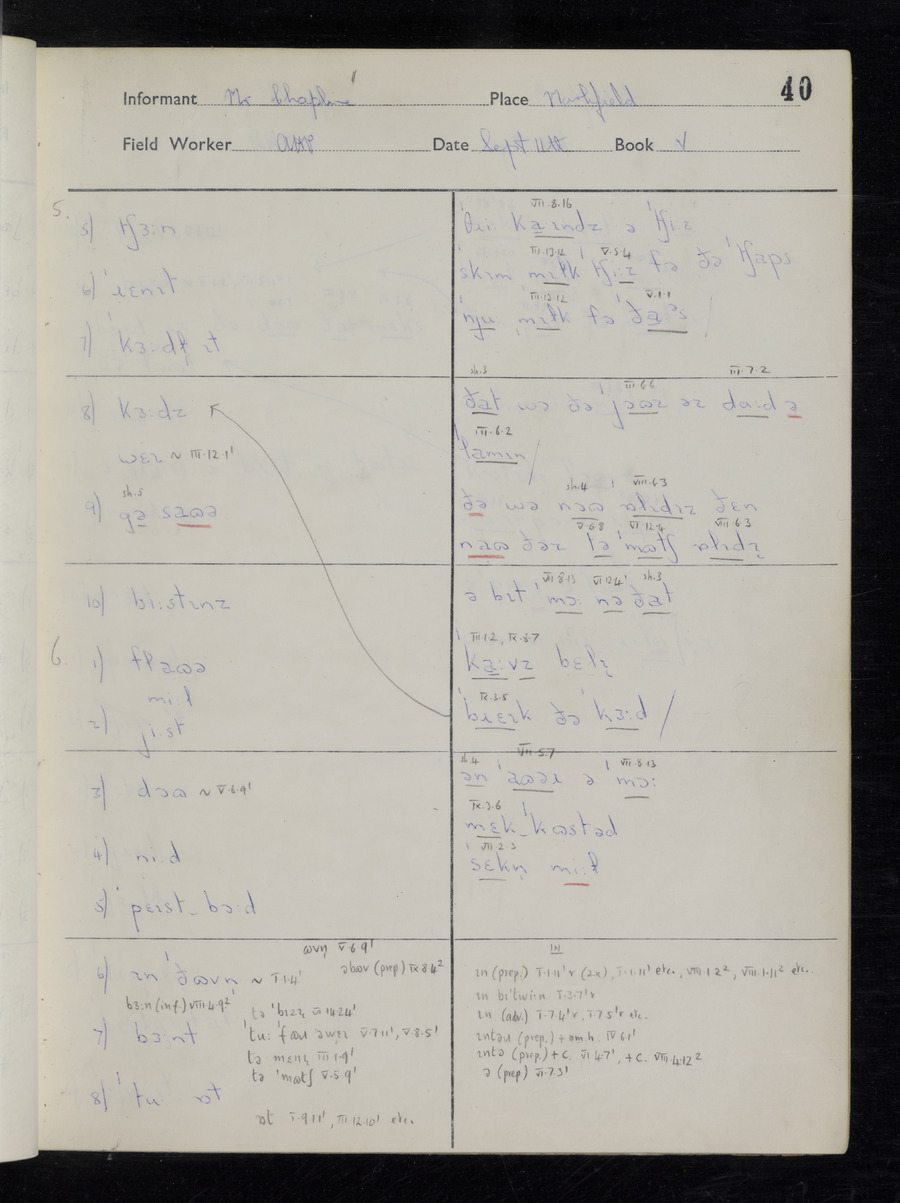 40
Informant Mr Chaplin Place Marshfield
Field Worker Date Sept 11th Book V
5.
5) ʧɜ:n
6) ˈɹɛnɪt
7) kɜ:dɫ ɪt
8) kɜ:dz
wɛɪ ~ III·12·1'
sh.5
9) gə saɷə
10) bi:stɪnz
6
1) flaɷə
mi:l
2) ji:st
3) dɔɷ ~ V·6·9'
4) ni:d
5) ˈpeɪst‿bɔ:d
ɷvn̩ V·6·9'
6) ɪn ˈðɷvn̩ ~ I·1·4' əbɷv (prep) IX·8·4²
bɜ:n (inf.) VIII·4·9²
tə ˈbɪzn̩ VI·14·24'
7) bɜ:nt ˈtu: ˈfaɷ əweɪ V·7·11', V·8·5'
tə menɪ III·1·9'
tə ˈmɷtʃ V·5·9'
8) ˈtu ɒt
ɒt I·9·11', III·12·10' etc.
VII·8·16
ka̤ɪndz ə ˈʧi:z
III·13·12 V·5·4
ˈskɪm mɪlk ʧi:z fə ðə ˈʧaps
III·13·12 V·1·1
ˈnju ˌmɪlk fə
sh.3 III·6·6 III·7·2
ðat wə ðə ˈjɔɷz əz da:d ə
III·6·2
ˈlamɪn /
sh.4 VIII·6·3
ðə wə nɔɷ ɒlɪdɪz ðɛn
V·6·8 VI·12·4 VIII·6·3
naɷ ðəz tə ˈmɷtʃ ɒlɪdɪ
VII·8·13 VI·12·4' sh.3
ə bɪt ˈmɔ: nə ðat
III·1·2, IX·3·7
ka:vz bɛlɪ
IX·3·5
ˈbɹɛɪk ðə ˈkɜ:d /
sh.4 VII·5·7 VII·8·13
ən ˈaɷəɹ ə ˈmɔ:
IX·3·6
mɛk‿ˈkɷstəd
VII·2·3
ˈsɛkn̩ mi:l
IN
ɪn (prep.) I·1·11' r (2x), I·1·11' etc., VIII·1·2², VIII·1·11² etc.
ɪn bɪˈtwi:n I·3·7'r
ɪn (adv.) I·7·4'r, I·7·5'r etc.
ɪntəu (prep.) + om.h. IV·6·1'
ɪntə (prep.) + c. VI·4·7', + c. VIII·4·12²
ə (prep) VI·7·3'